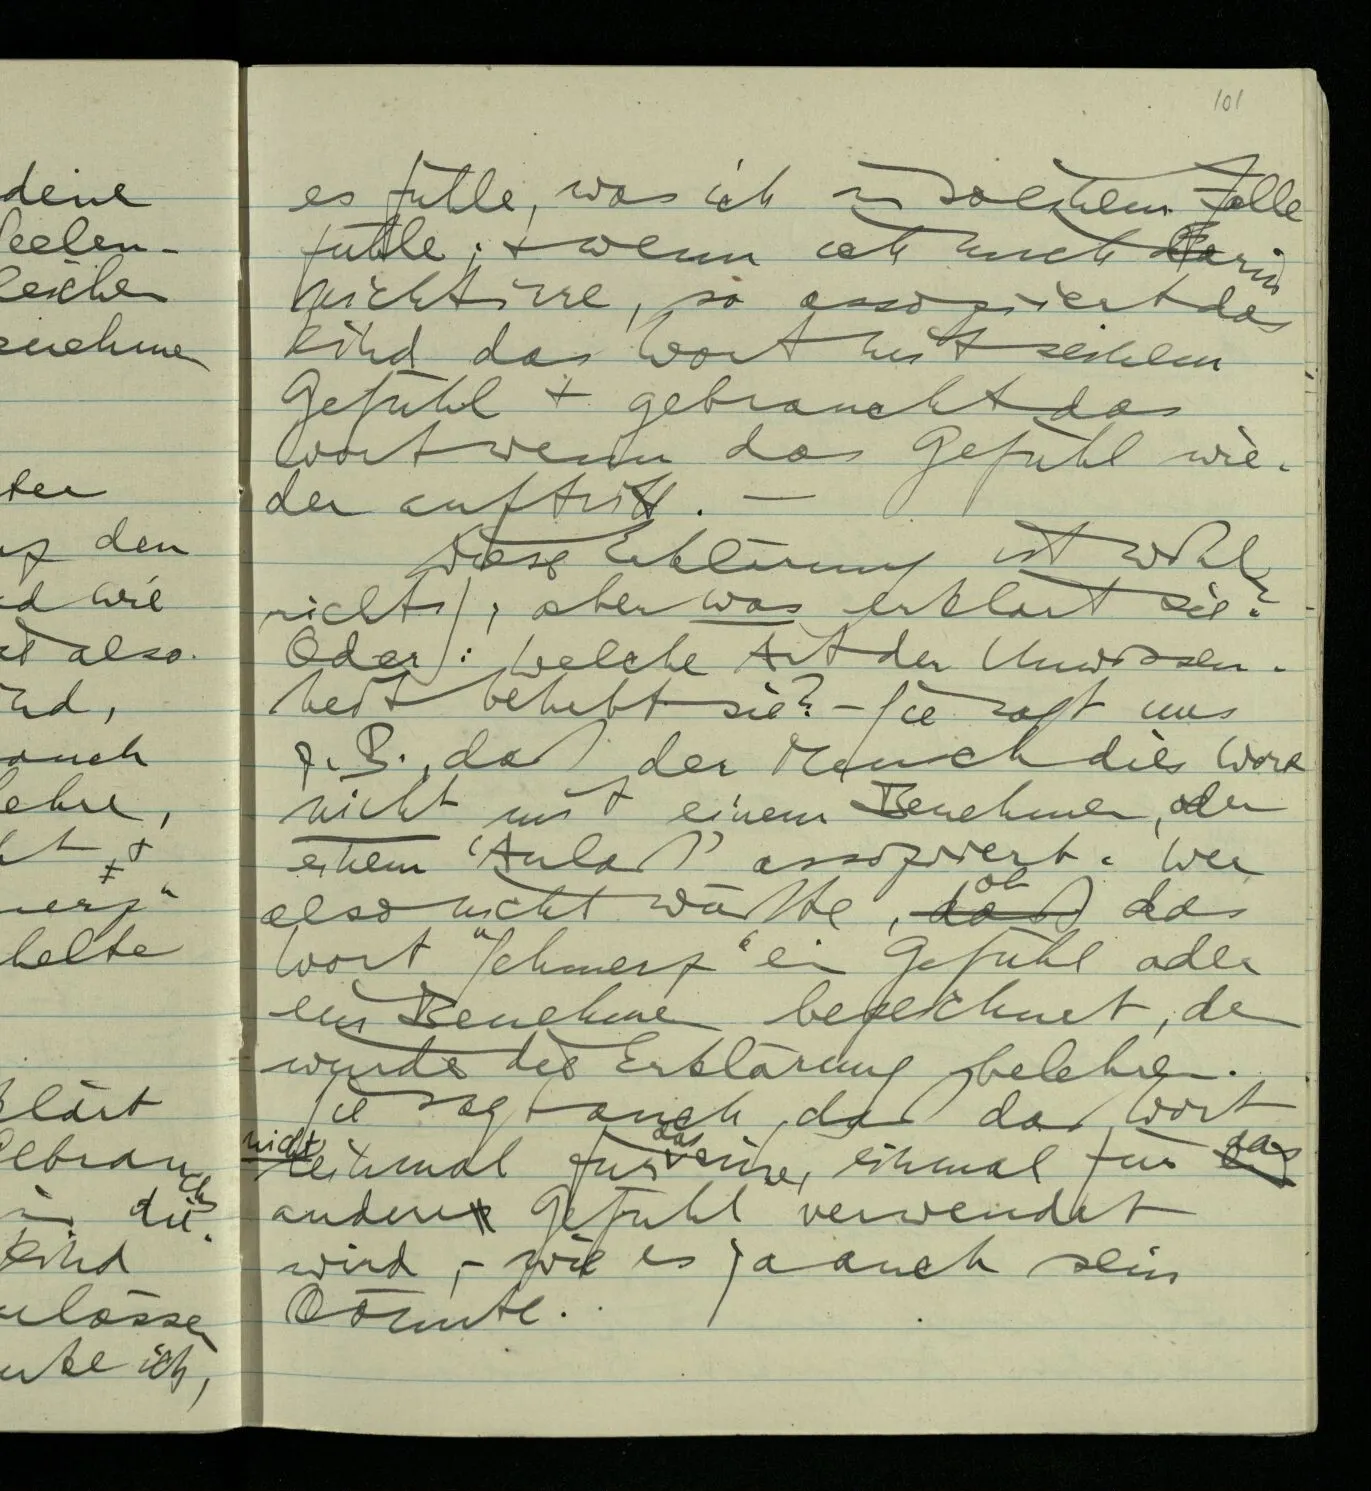 101
es fühle, was ich in solchem Falle
fühle; + wenn ich mich darin
nicht irre, so assoziiert das
Kind das Wort mit seinem
Gefühl + gebraucht das
Wort wenn das Gefühl wie-
der auftritt. —
Diese Erklärung ist wohl
richtig, aber was erklärt sie?
Oder: welche Art der Unwissen-
heit behebt sie? – Sie sagt uns
z.B., daß der Mensch dies Wort
nicht mit einem Benehmen, oder
einem 'Anlaß' assoziiert. Wer
also nicht wüßte, daß ob das
Wort "Schmerz" ein Gefühl oder
ein Benehmen bezeichnet, den
würde die Erklärung belehren.
Sie sagt auch, daß das Wort
nicht einmal für das eine, einmal für das
andere Gefühl verwendet
wird, – wie es ja auch sein
könnte.
deine
Seelen-
leichen
ter
den
wie
also.
auch
lehre,
erz"
helte
klärt
Gebrauch
die
Kind
ich,